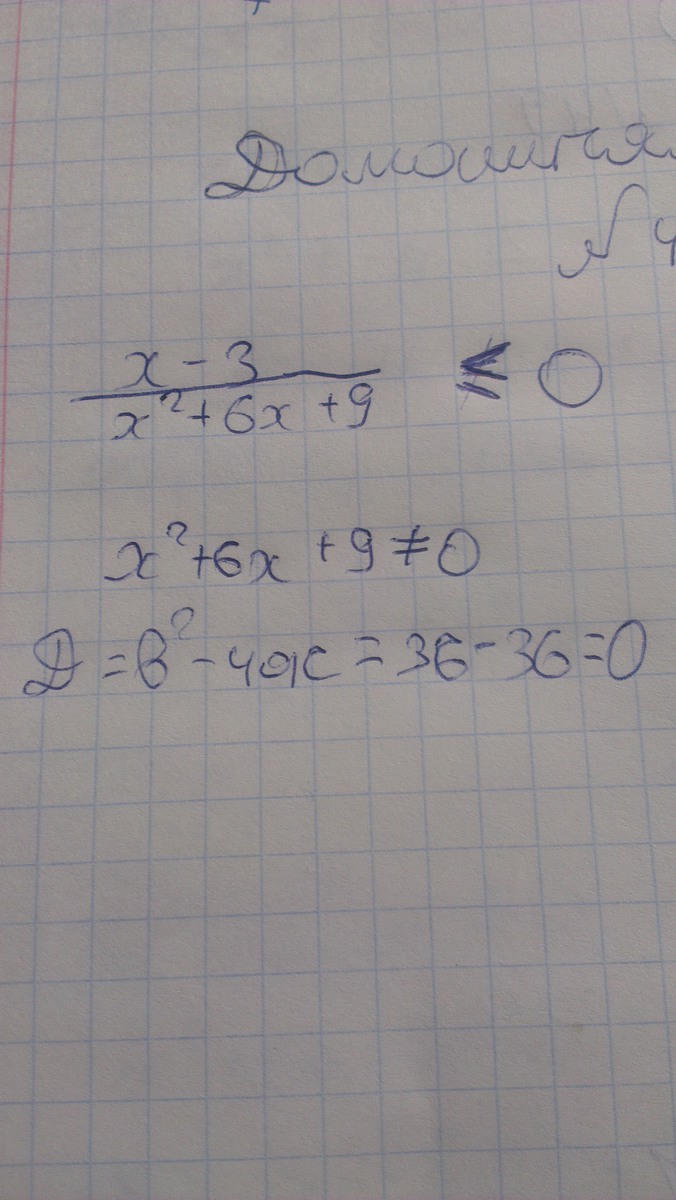 Домашняя
№ 4
x - 3 / x² + 6x + 9 ≤ 0
x² + 6x + 9 ≠ 0
D = b² - 4ac = 36 - 36 = 0